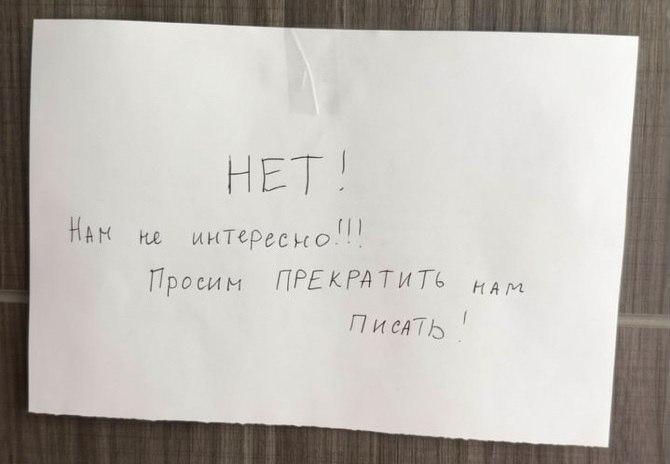 НЕТ!
Нам не интересно!!!
Просим ПРЕКРАТИТЬ нам
писать!